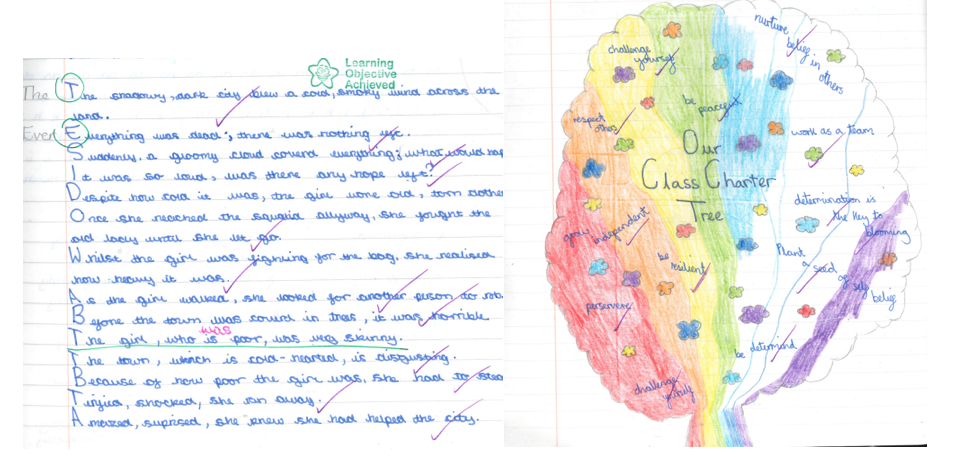 Learning
Objective
Achieved
The
The shadowy, dark city blew a cold, smoky wind across the
land.
Even
Everything was dead; there was nothing left.
Suddenly, a gloomy cloud coverd everything; what would hap
It was so loud, was there any hope left?
Despite how cold it was, the girl wore old, torn clothe
Once she reached the squalid allyway, she fought the
old lady until she let go.
Whilst the girl was fighting for the bag, she realised
how heavy it was.
As the girl walked, she looked for another person to rob
Before the town was coverd in trees, it was horrible
was
The girl, who is poor, was very skinny.
The town, which is cold-hearted, is disgusting.
Because of how poor the girl was, she had to stea
shocked, she ran away.
Amazed, suprised, she knew she had helped the city.
nurture
belief in
others
challenge
yourself
be
peaceful
respect
others
work as a team
Our
Class Charter
Tree
determination is
the key to
blooming
grow
independent
be
resilient
Plant
a
seed
of self
belief
perservere
be determind
challenge
yourself